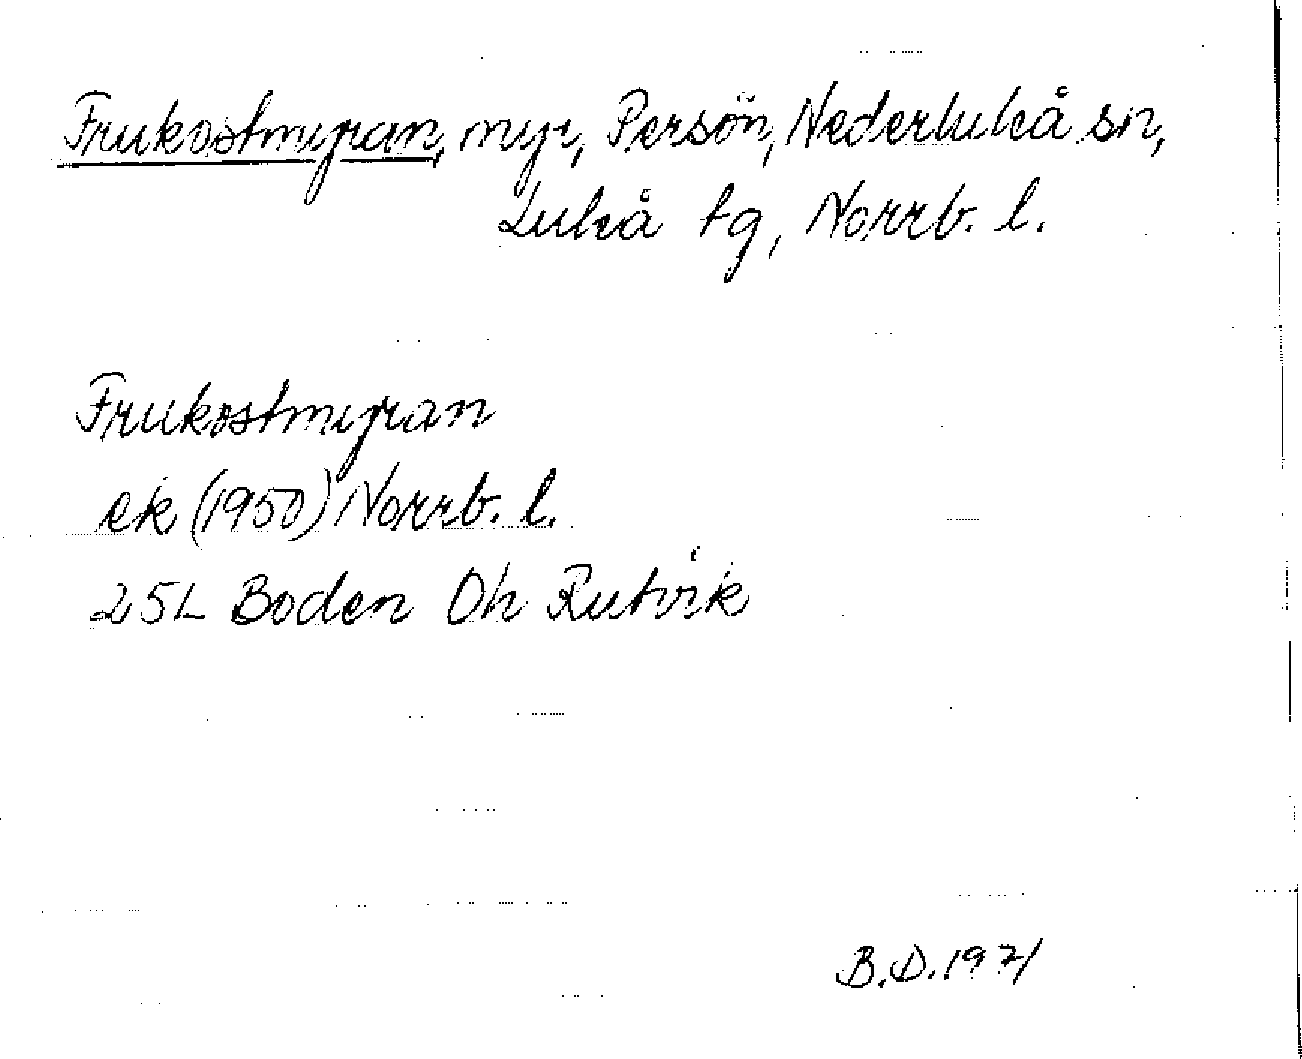 Frukostmyran, myr, Persön, Nederluleå sn,
Luleå tg, Norrb. l.
Frukostmyran
ek (1950) Norrb. l.
25L Boden Oh Rutvik
B.D. 1971